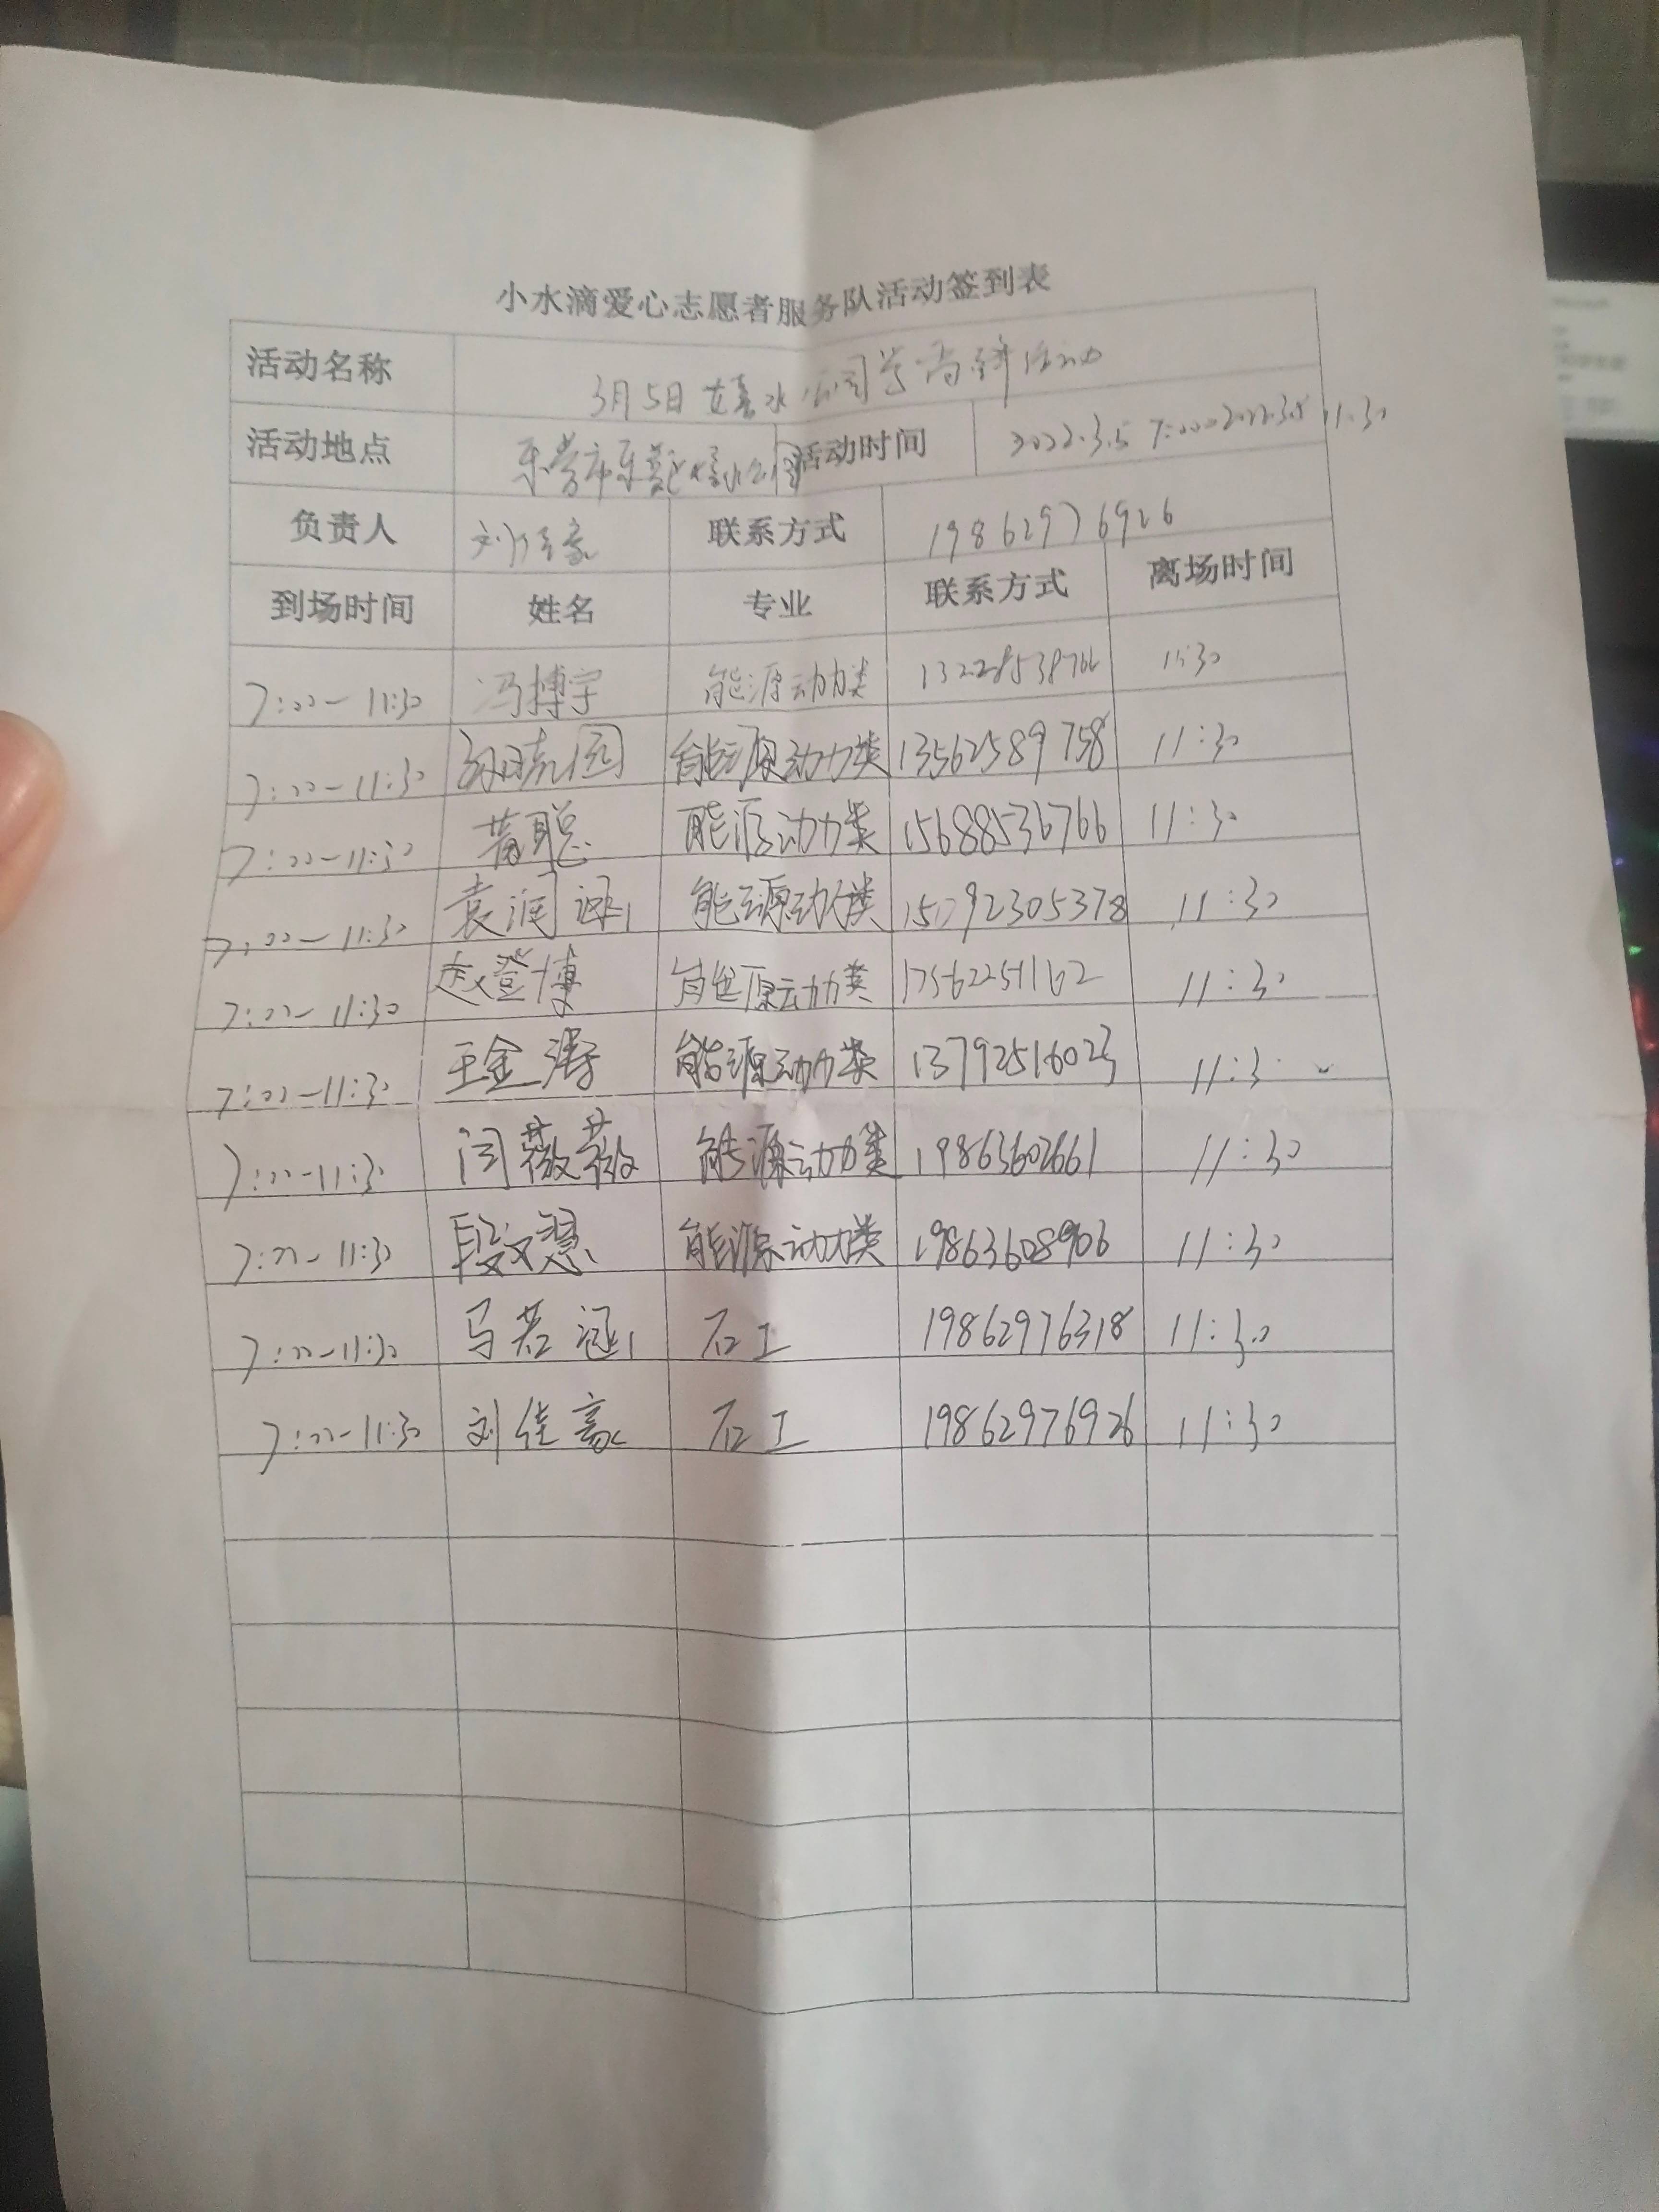 小水滴爱心志愿者服务队活动签到表
活动名称 3月5日 水公园学雷锋活动
活动地点 东营市东营区 水公园 活动时间 2022.3.5 7:00-2022.3.5 11:30
负责人 刘佳豪 联系方式 19862976926
到场时间 姓名 专业 联系方式 离场时间
7:00-11:30 冯搏宇 能源动力类 13228538766 11:30
7:00-11:30 能源动力类 13562589758 11:30
7:00-11:30 黄聪 能源动力类 15688536766 11:30
7:00-11:30 袁润 能源动力类 11:30
7:00-11:30 赵登博 能源动力类 17562251162 11:30
7:00-11:30 王金涛 能源动力类 13792516023 11:3
7:00-11:30 闫薇薇 能源动力类 19863602661 11:30
7:00-11:30 段文慧 能源动力类 19863608906 11:30
7:00-11:30 马若涵 石工 19862976318 11:30
7:00-11:30 刘佳豪 石工 19862976926 11:30